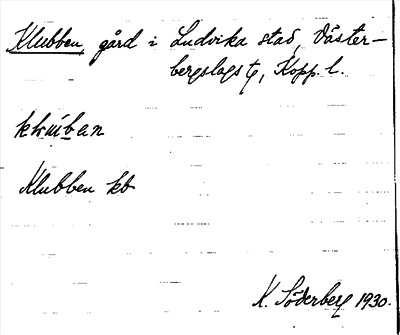 Klubben, gård i Ludvika stad, Väster-
bergslags tg, Kopp. l.
Klubben kb
K. Söderberg 1930.